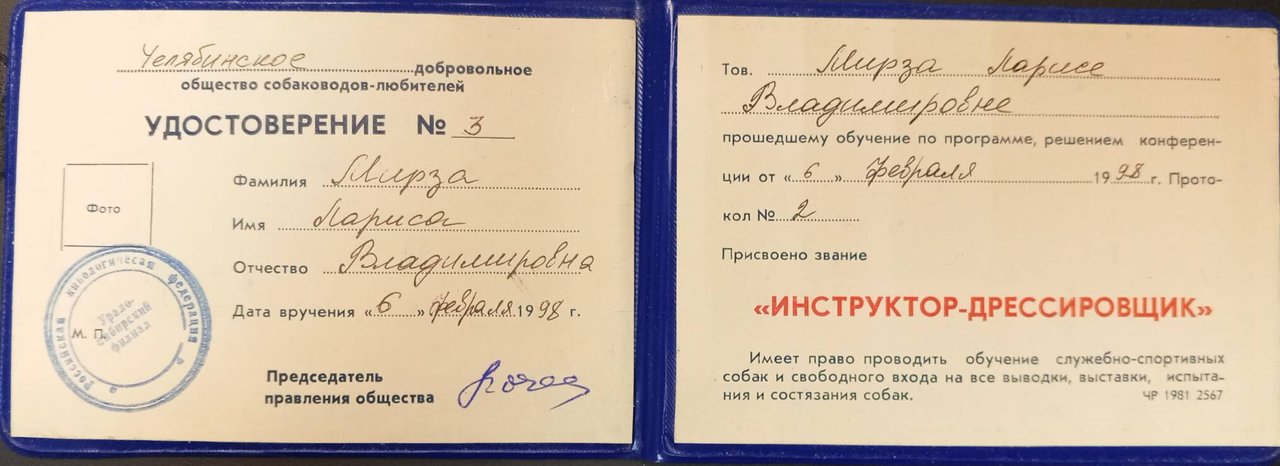 Челябинское добровольное
общество собаководов-любителей
УДОСТОВЕРЕНИЕ № 3
Фото
Фамилия Мирза
Имя Лариса
Отчество Владимировна
Дата вручения «6» февраля 1998 г.
М. П.
Российская кинологическая федерация
Урало-
Сибирский
филиал
Председатель
правления общества
Тов. Мирза Ларисе
Владимировне
прошедшему обучение по программе, решением конферен-
ции от «6» февраля 1998 г. Прото-
кол № 2
Присвоено звание
«ИНСТРУКТОР-ДРЕССИРОВЩИК»
Имеет право проводить обучение служебно-спортивных
собак и свободного входа на все выводки, выставки, испыта-
ния и состязания собак.
ЧР 1981 2567